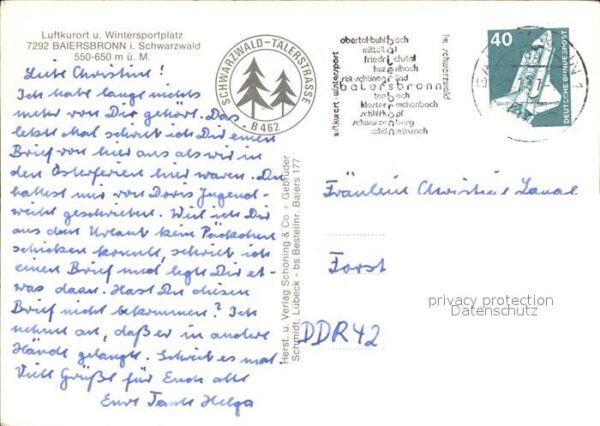 Luftkurort u. Wintersportplatz
7292 BAIERSBRONN i. Schwarzwald
550-650 m ü. M.
Liebe Christine!
Ich habe lange nichts
mehr von Dir gehört. Das
letzte Mal schrieb ich Dir einen
Brief von hier aus als wir in
den Osterferien hier waren. Du
hattest mir von Doris Jugend-
weihe geschrieben. Weil ich Dir
aus dem Urlaub kein Päckchen
schicken konnte, schrieb ich
einen Brief und legte Dir et-
was daran. Hast Du diesen
Brief nicht bekommen? Ich
nehme an, daß er in andere
Hände gelangte. Schreib es mal.
Viele Grüße für Euch alle
Eure Tante Helga
SCHWARZWALD-TÄLERSTRASSE
B 462
Herst. u. Verlag Schöning & Co + Gebrüder
Schmidt, Lübeck - bs Bestellnr. Baiers 177
luftkurort - wintersport
obertal-buhlbach
mitteltal
friedrichstal
huzenbach
baiersbronn
tonbach
klosterreichenbach
schwarzenberg
schönmünzach
im schwarzwald
40
DEUTSCHE BUNDESPOST
Fräulein Christine
Forst
DDR 42
privacy protection
Datenschutz